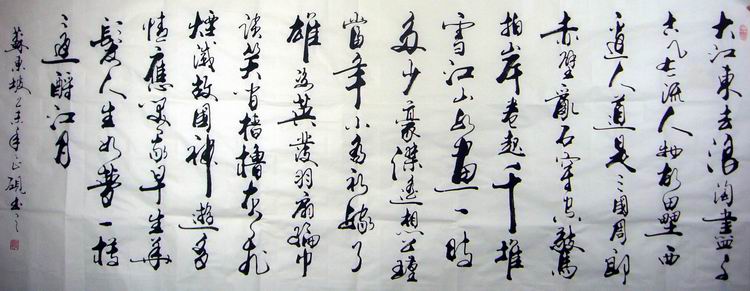 大江東去浪淘盡千
古風流人物故壘西
邊人道是三國周郎
赤壁亂石穿空驚
拍岸卷起千堆
雪江山如畫一時
多少豪傑遙想公瑾
當年小喬初嫁了
雄姿英發羽扇綸巾
談笑間檣櫓灰飛
煙滅故國神遊多
情應笑我早生華
髮人生如夢一樽
還酹江月
蘇東坡乙未年正硯書之